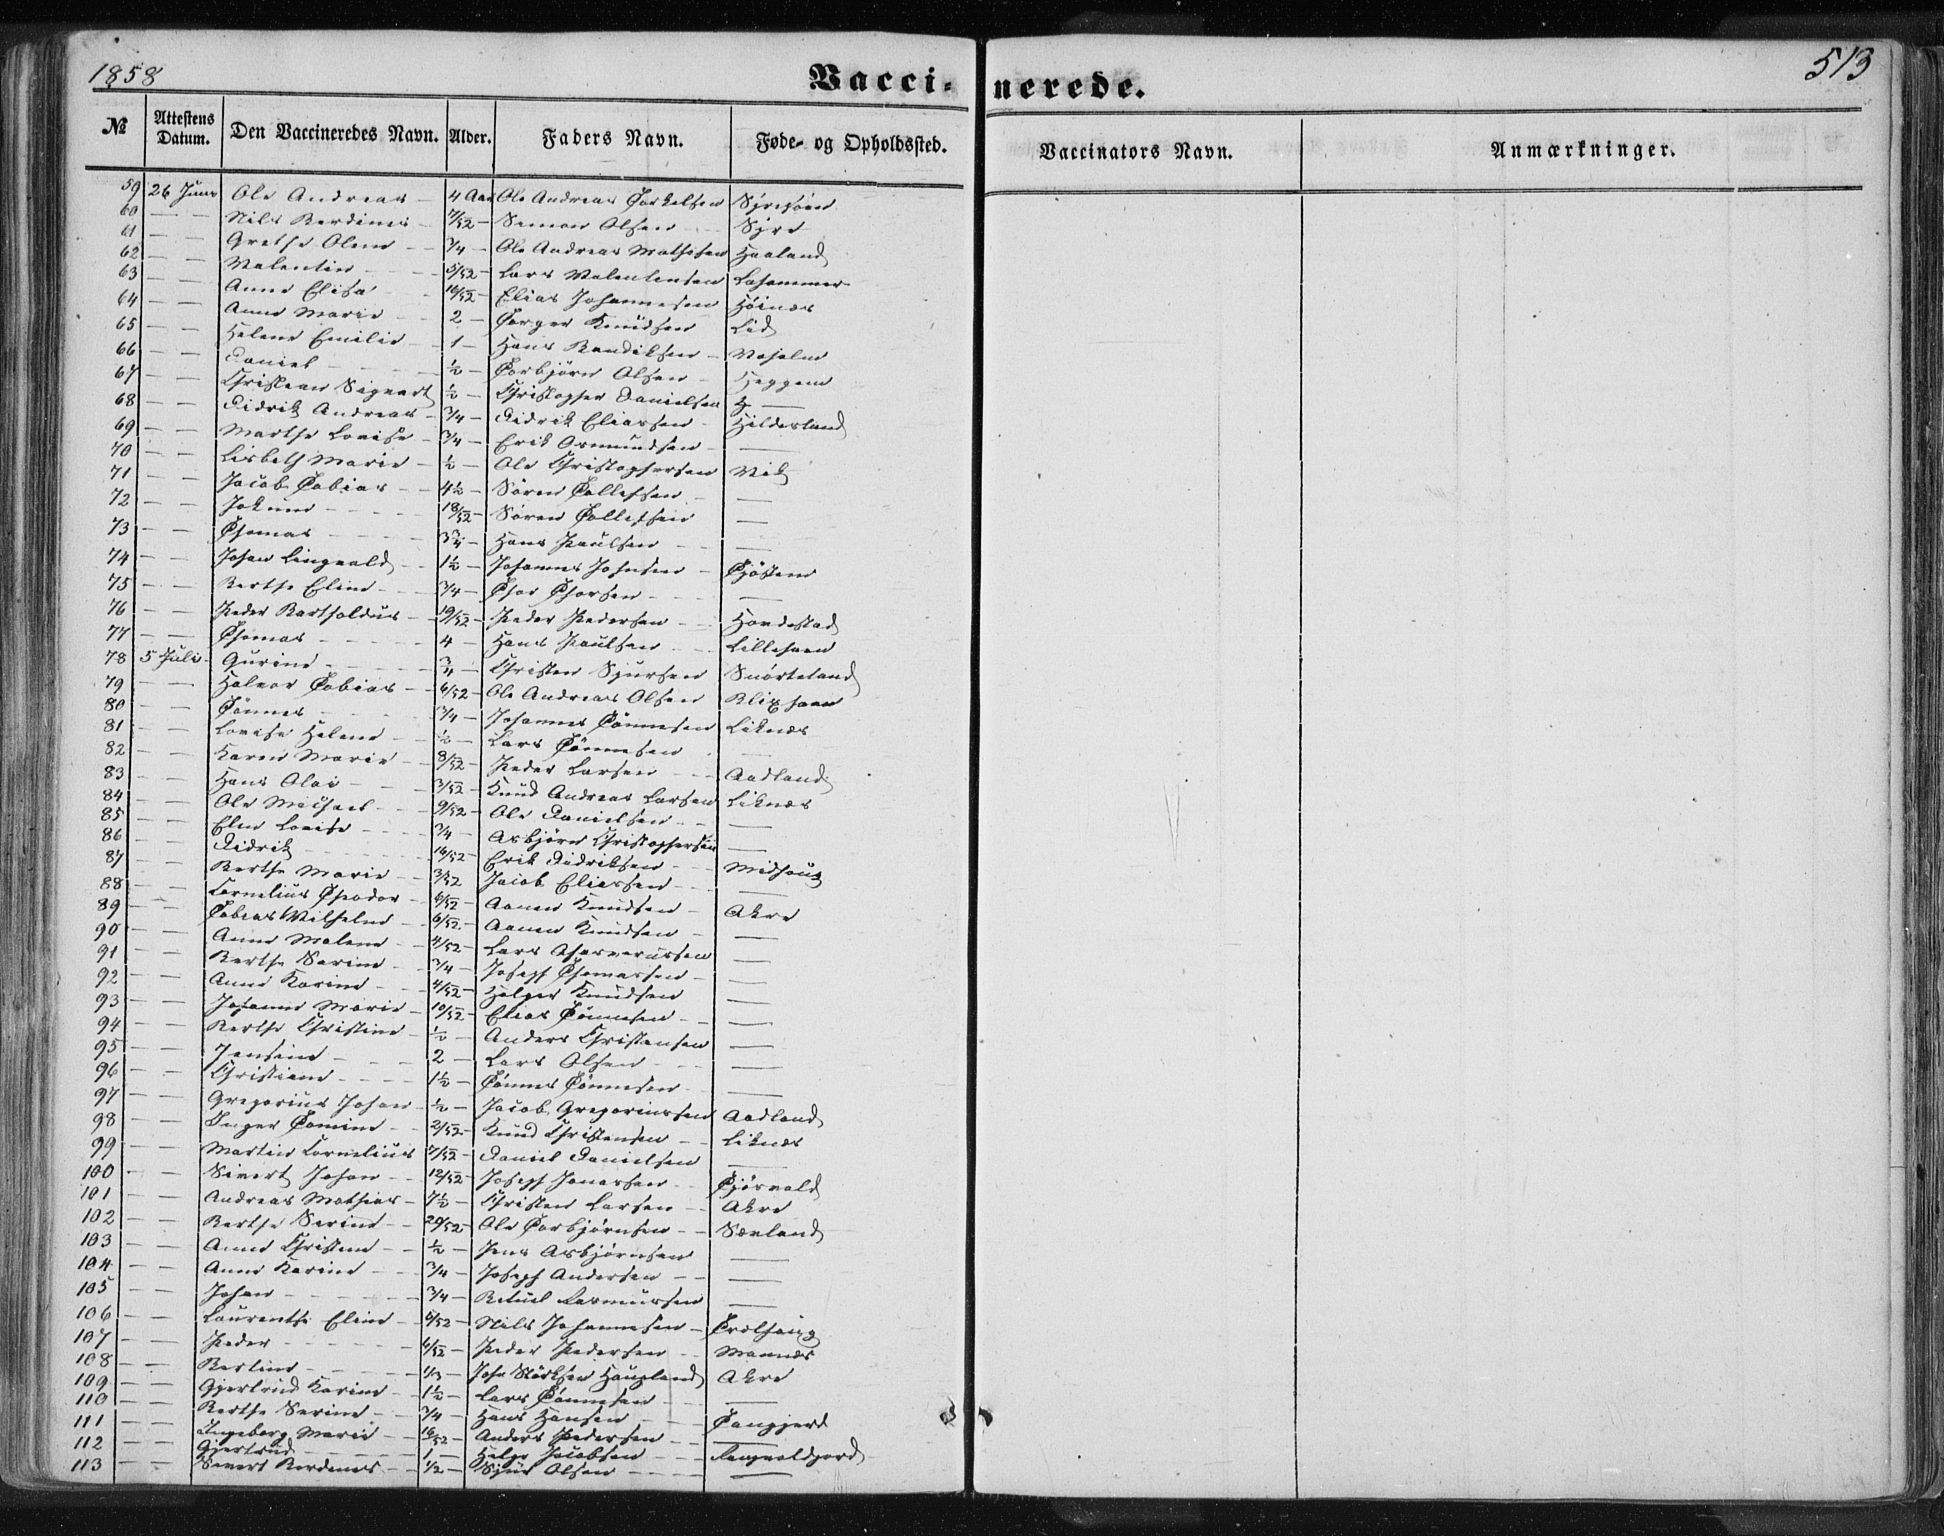 1858
Vaccinerede.
513
№ Attestens Datum. Den Vaccineredes Navn. Alder. Faders Navn. Føde- og Opholdssted. Vaccinators Navn. Anmærkninger.
59 26 Juni Ole Andreas — 4 Aar Ole Andreas Torkelsen
60 — — Nils Berdines 7/52 — Simon Olsen — Syre
61 — — Grethe Oline — 3/4 — Ole Andreas Mathisen Haaland
62 — — Valentin — 5/52 — Lars Valentinsen
63 — — Anne Elisa — 16/52 — Elias Johannesen Høinæs
64 — — Anne Marie — 2 — Torger Knudsen Lid
65 — — Helene Emilie — 1 — Hans Bendiksen
66 — — Daniel — 1/2 — Torbjørn Olsen
67 — — Christian Sigvart 1/2 — Christopher Danielsen
68 — — Didrik Andreas — 3/4 — Didrik Eliassen — Hildesland
69 — — Marthe Lovise — 3/4 — Erik Osmundsen —
70 — — Lisbeth Marie — 1/2 — Ole Christophersen Vik
71 — — Jacob Tobias — 4 1/2 — Søren Tollefsen —
72 — — — 18/52 — Søren Tollefsen —
73 — — Thomas — 3 3/4 — Hans Paulsen —
74 — — Johan — 1 1/2 — Johannes Johnsen —
75 — — Berthe Eline — 3/4 — Thor Thorsen —
76 — — Peder Bartholdus — 19/52 — Peder Pedersen —
77 — — Thomas — 4 — Hans Paulsen
78 5 Juli Gurine — 3/4 — Christen Sjursen
79 — — Halvor Tobias — 6/52 — Ole Andreas Olsen
80 — — Tønnes — 3/4 — Johannes Tønnesen Liknæs
81 — — Lovise Helene — 1/2 — Lars Tønnesen —
82 — — Karen Marie — 8/52 — Peder Larsen — Aadland
83 — — Hans Olai — 3/52 — Knud Andreas Larsen Liknæs
84 — — Ole Michael — 9/52 — Ole Danielsen —
85 — — Elen Lovise — 3/4 — Asbjørn Christophersen —
86 — — Didrik — 16/52 — Erik Didriksen — Midhoug
87 — — Berthe Marie — 3/52 Jacob Eliassen —
88 — — Cornelius Theodor — 6/52 — Aanen Knudsen — Akre
89 — — Tobias Wilhelm — 6/52 — Aanen Knudsen —
90 — — Anne Malene — 4/52 — Lars Asverussen —
91 — — Berthe Serine — 3/4 — Joseph Thomassen —
92 — — Anne Karine — 4/52 — Holger Knudsen —
93 — — Johanne Marie — 10/52 — Elias Tønnesen —
94 — — Berthe Christine — 1/2 — Anders Christensen —
95 — — Jensine — 2 — Lars Olsen —
96 — — Christiane — 1 1/2 — Tønnes Tønnesen —
97 — — Gregorius Johan — 1/2 — Jacob Gregoriussen Aadland
98 — — Inger Tomine — 2/52 — Knud Christensen — Liknæs
99 — — Martin Cornelius 7/52 — Daniel Danielsen —
100 — — Sivert Johan — 12/52 — Joseph Jonassen —
101 — — Andreas Mathias — 7 1/2 — Christen Larsen — Akre
102 — — Berthe Serine — 20/52 — Ole Torbjørnsen — Sævland
103 — — Anne Christine — 1/2 — Jens Asbjørnsen —
104 — — Anne Karine — 3/4 — Joseph Andersen —
105 — — Johan — 3/4 — Rasmussen —
106 — — Laurentse Eline — 5/52 — Nils Johannesen —
107 — — Peder — 6/52 — Peder Pedersen — Mannæs
108 — — Bertine — 1/3 — John Haugland Akre
109 — — Gjertrud Karine — 1 1/2 — Lars Tønnesen —
110 — — Berthe Serine — 3/4 — Hans Hansen — Tangjerd
111 — — Ingeborg Marie — 16/52 — Anders Pedersen —
112 — — Gjertrud — 1 — Helge Jacobsen —
113 — — Sivert Berdines — 1/2 — Sjur Olsen —